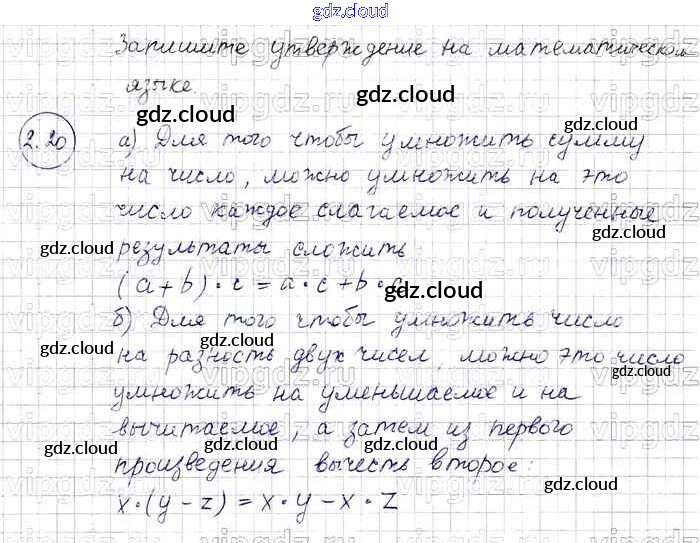 gdz.cloud
Запишите утверждение на математическом
языке.
gdz.cloud
gdz.cloud
2.20
а) Для того чтобы умножить сумму
gdz.cloud
на число, можно умножить на это
число каждое слагаемое и полученные
gdz.cloud результаты сложить: gdz.cloud
(a+b)·c=a·c+b·c
gdz.cloud
б) Для того чтобы умножить число
gdz.cloud gdz.cloud
на разность двух чисел, можно это число
gdz.cloud
умножить на уменьшаемое и на
вычитаемое, а затем из первого
gdz.cloud gdz.cloud gdz.cloud
произведения вычесть второе:
x·(y-z)=x·y-x·z
gdz.cloud gdz.cloud
gdz.cloud